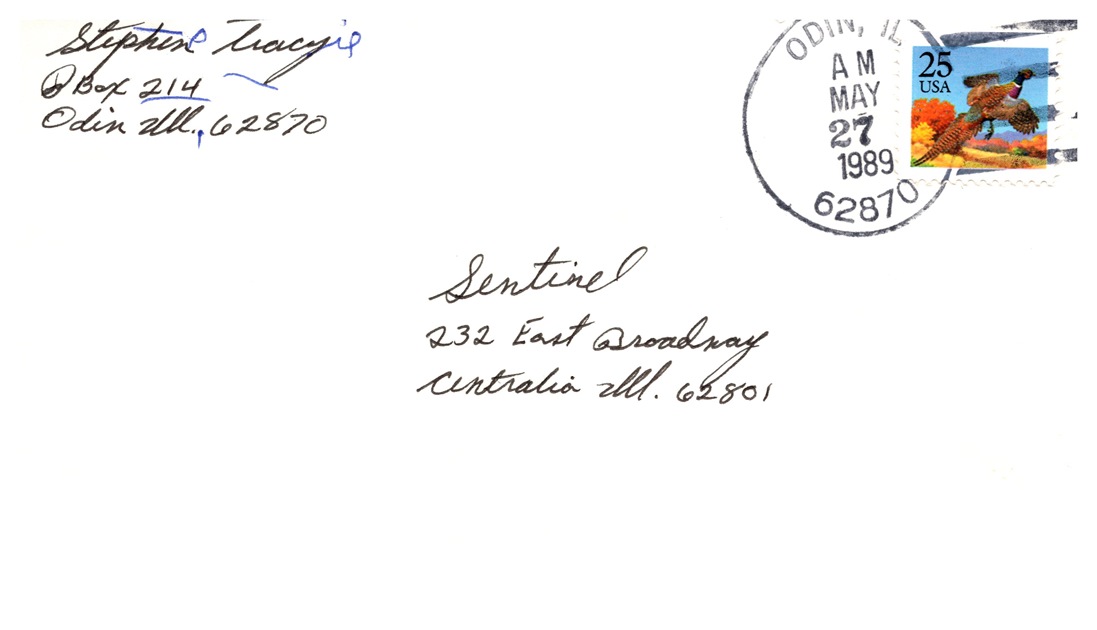 Stephen Tracy
P Box 214
Odin Ill. 62870
ODIN, IL
AM
MAY
27
1989
62870
25
USA
Sentinel
232 East Broadway
Centralia Ill. 62801